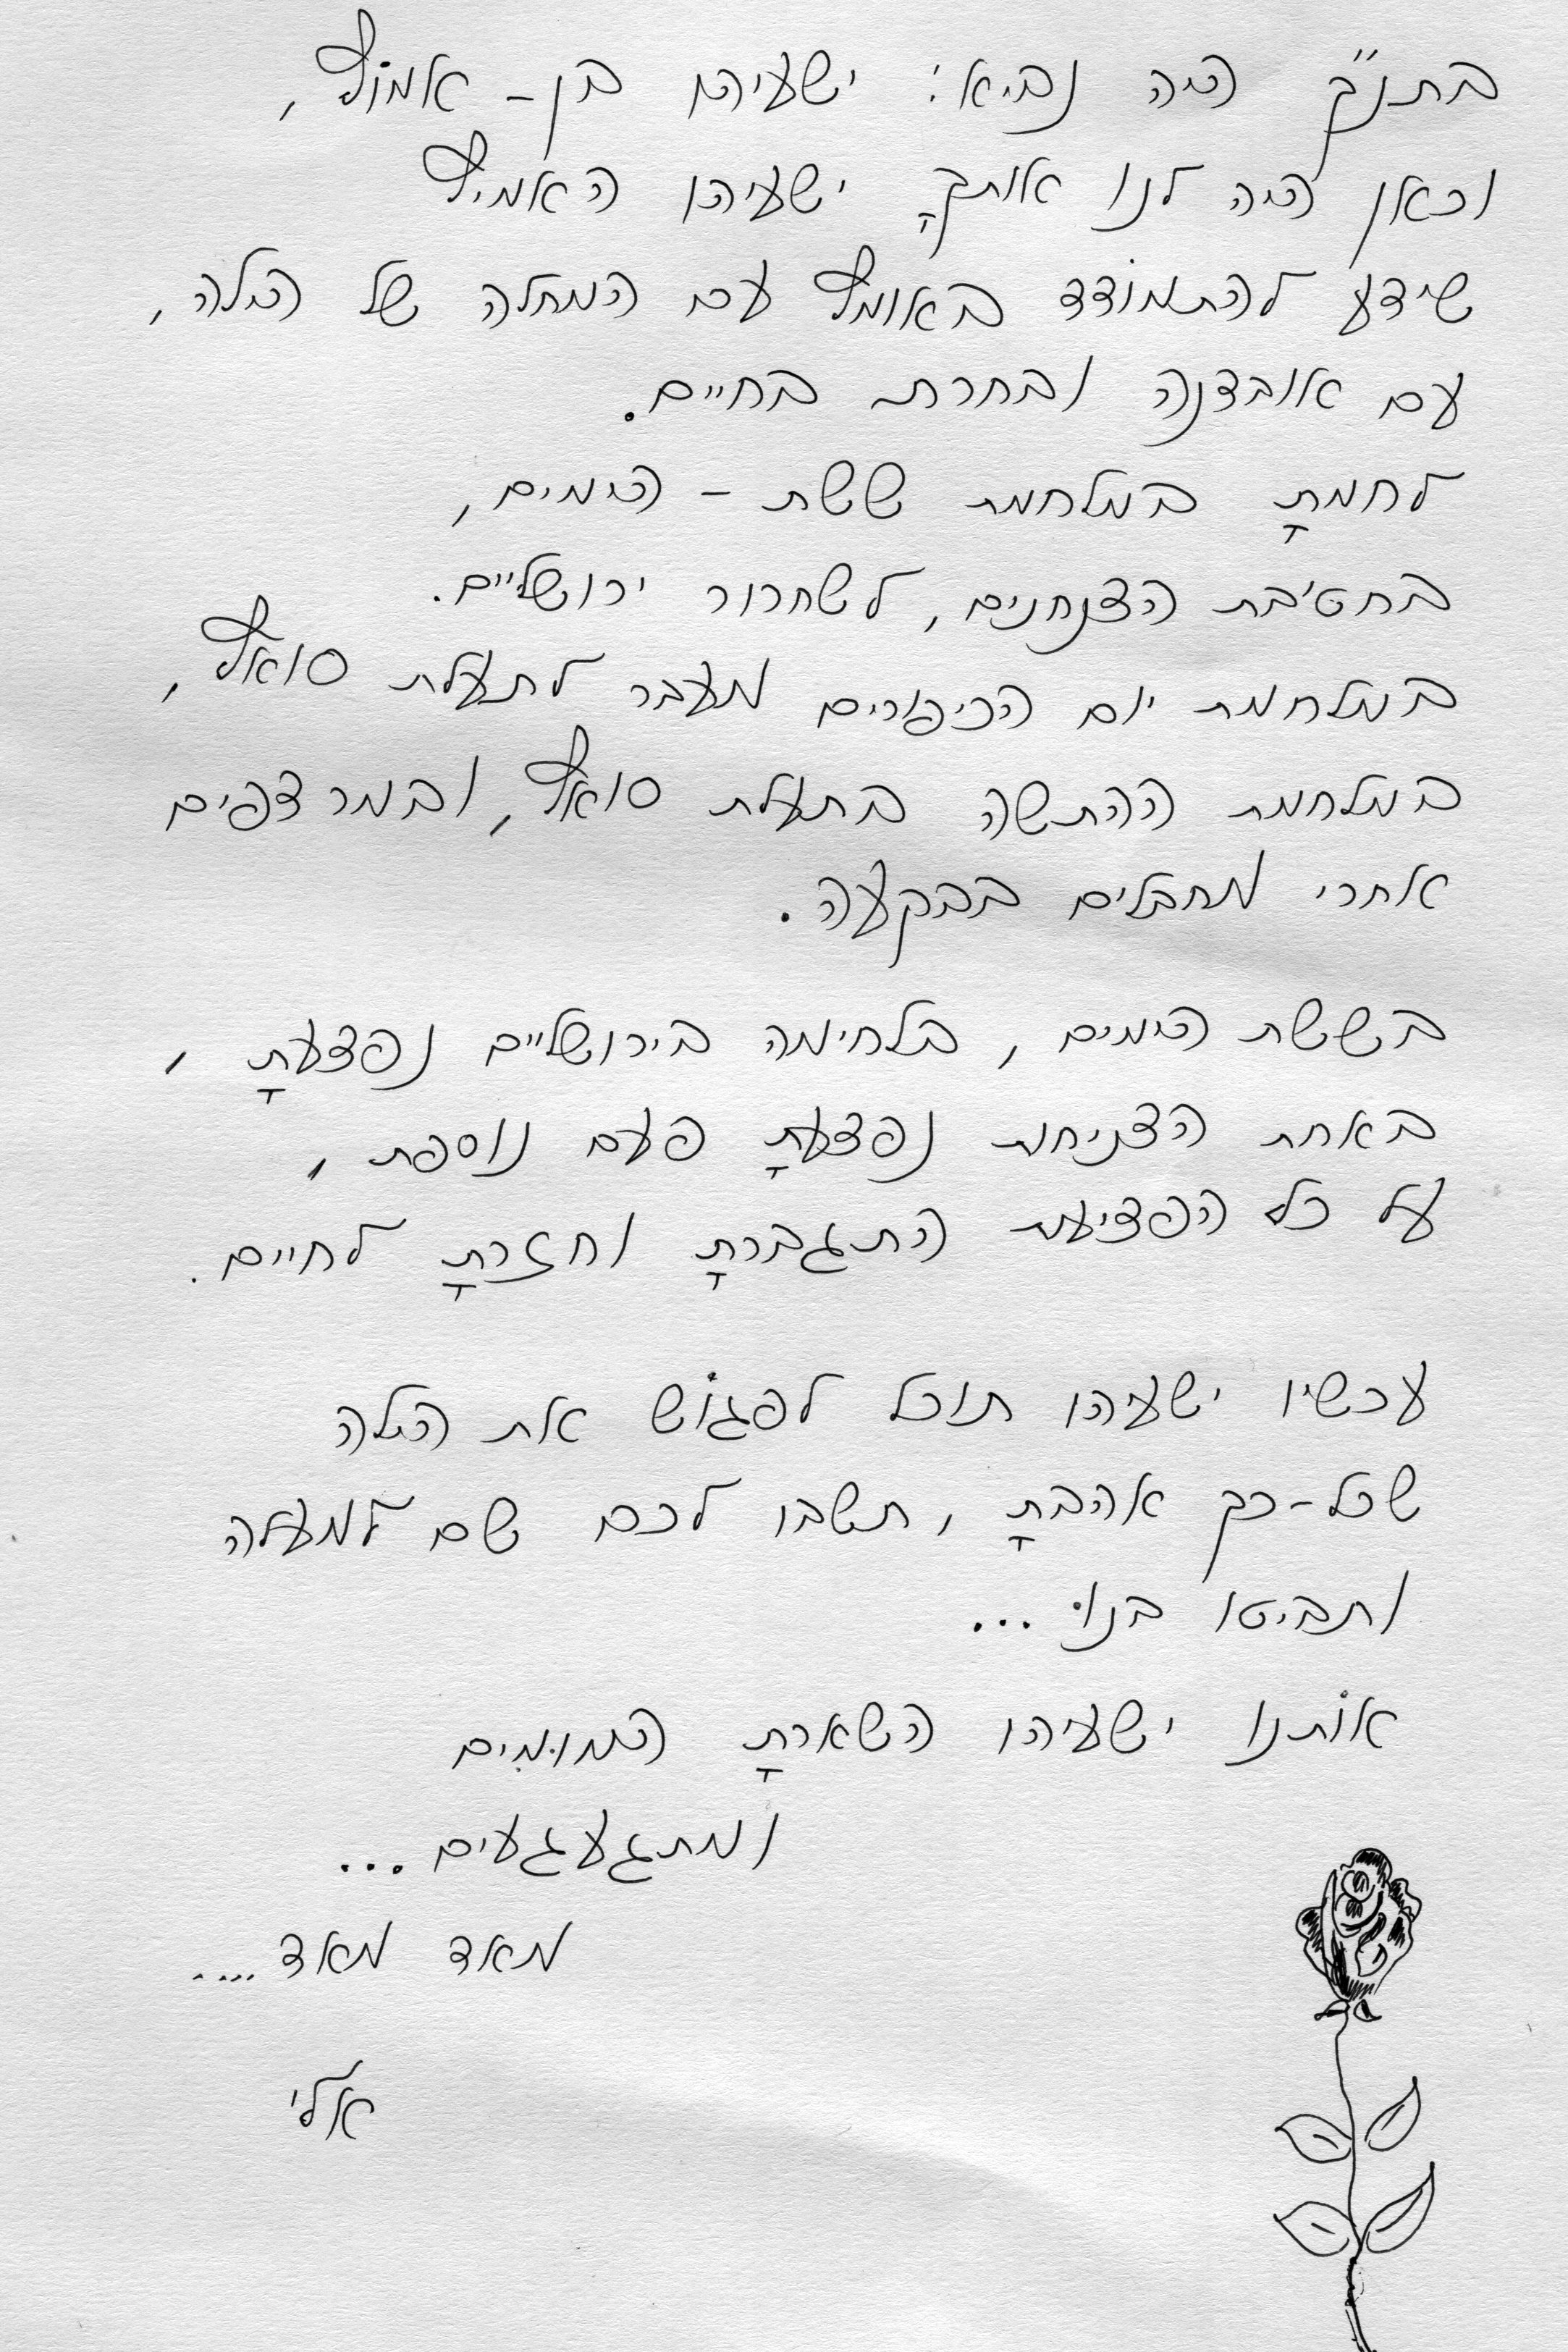 בתנ"ך היה נביא: ישעיהו בן - אמוֹץ,
וכאן היה לנו אותךָ ישעיהו האמיץ
שידע להתמוֹדד באומץ עם המחלה של הילה,
עם אובדנה ובחרת בחיים.
לחמתָ במלחמת ששת - הימים,
בחטיבת הצנחנים, לשחרור ירושליים.
במלחמת יום הכיפורים מעבר לתעלת סואץ,
במלחמת ההתשה בתעלת סואץ, ובמרדפים
אחרי מחבלים בבקעה.
בששת הימים, בלחימה בירושליים נפצעתָ,
באחת הצניחות נפצעתָ פעם נוספת,
על כל הפציעות התגברתָ וחזרתָ לחיים.
עכשיו ישעיהו תוכל לפגוֹש את הילה
שכל-כך אהבתָ, תשבו לכם שם למעלה
ותביטו בנוּ...
אוֹתנו ישעיהו השארתָ המוּמים
ומתגעגעים...
מאד מאד....
אלי